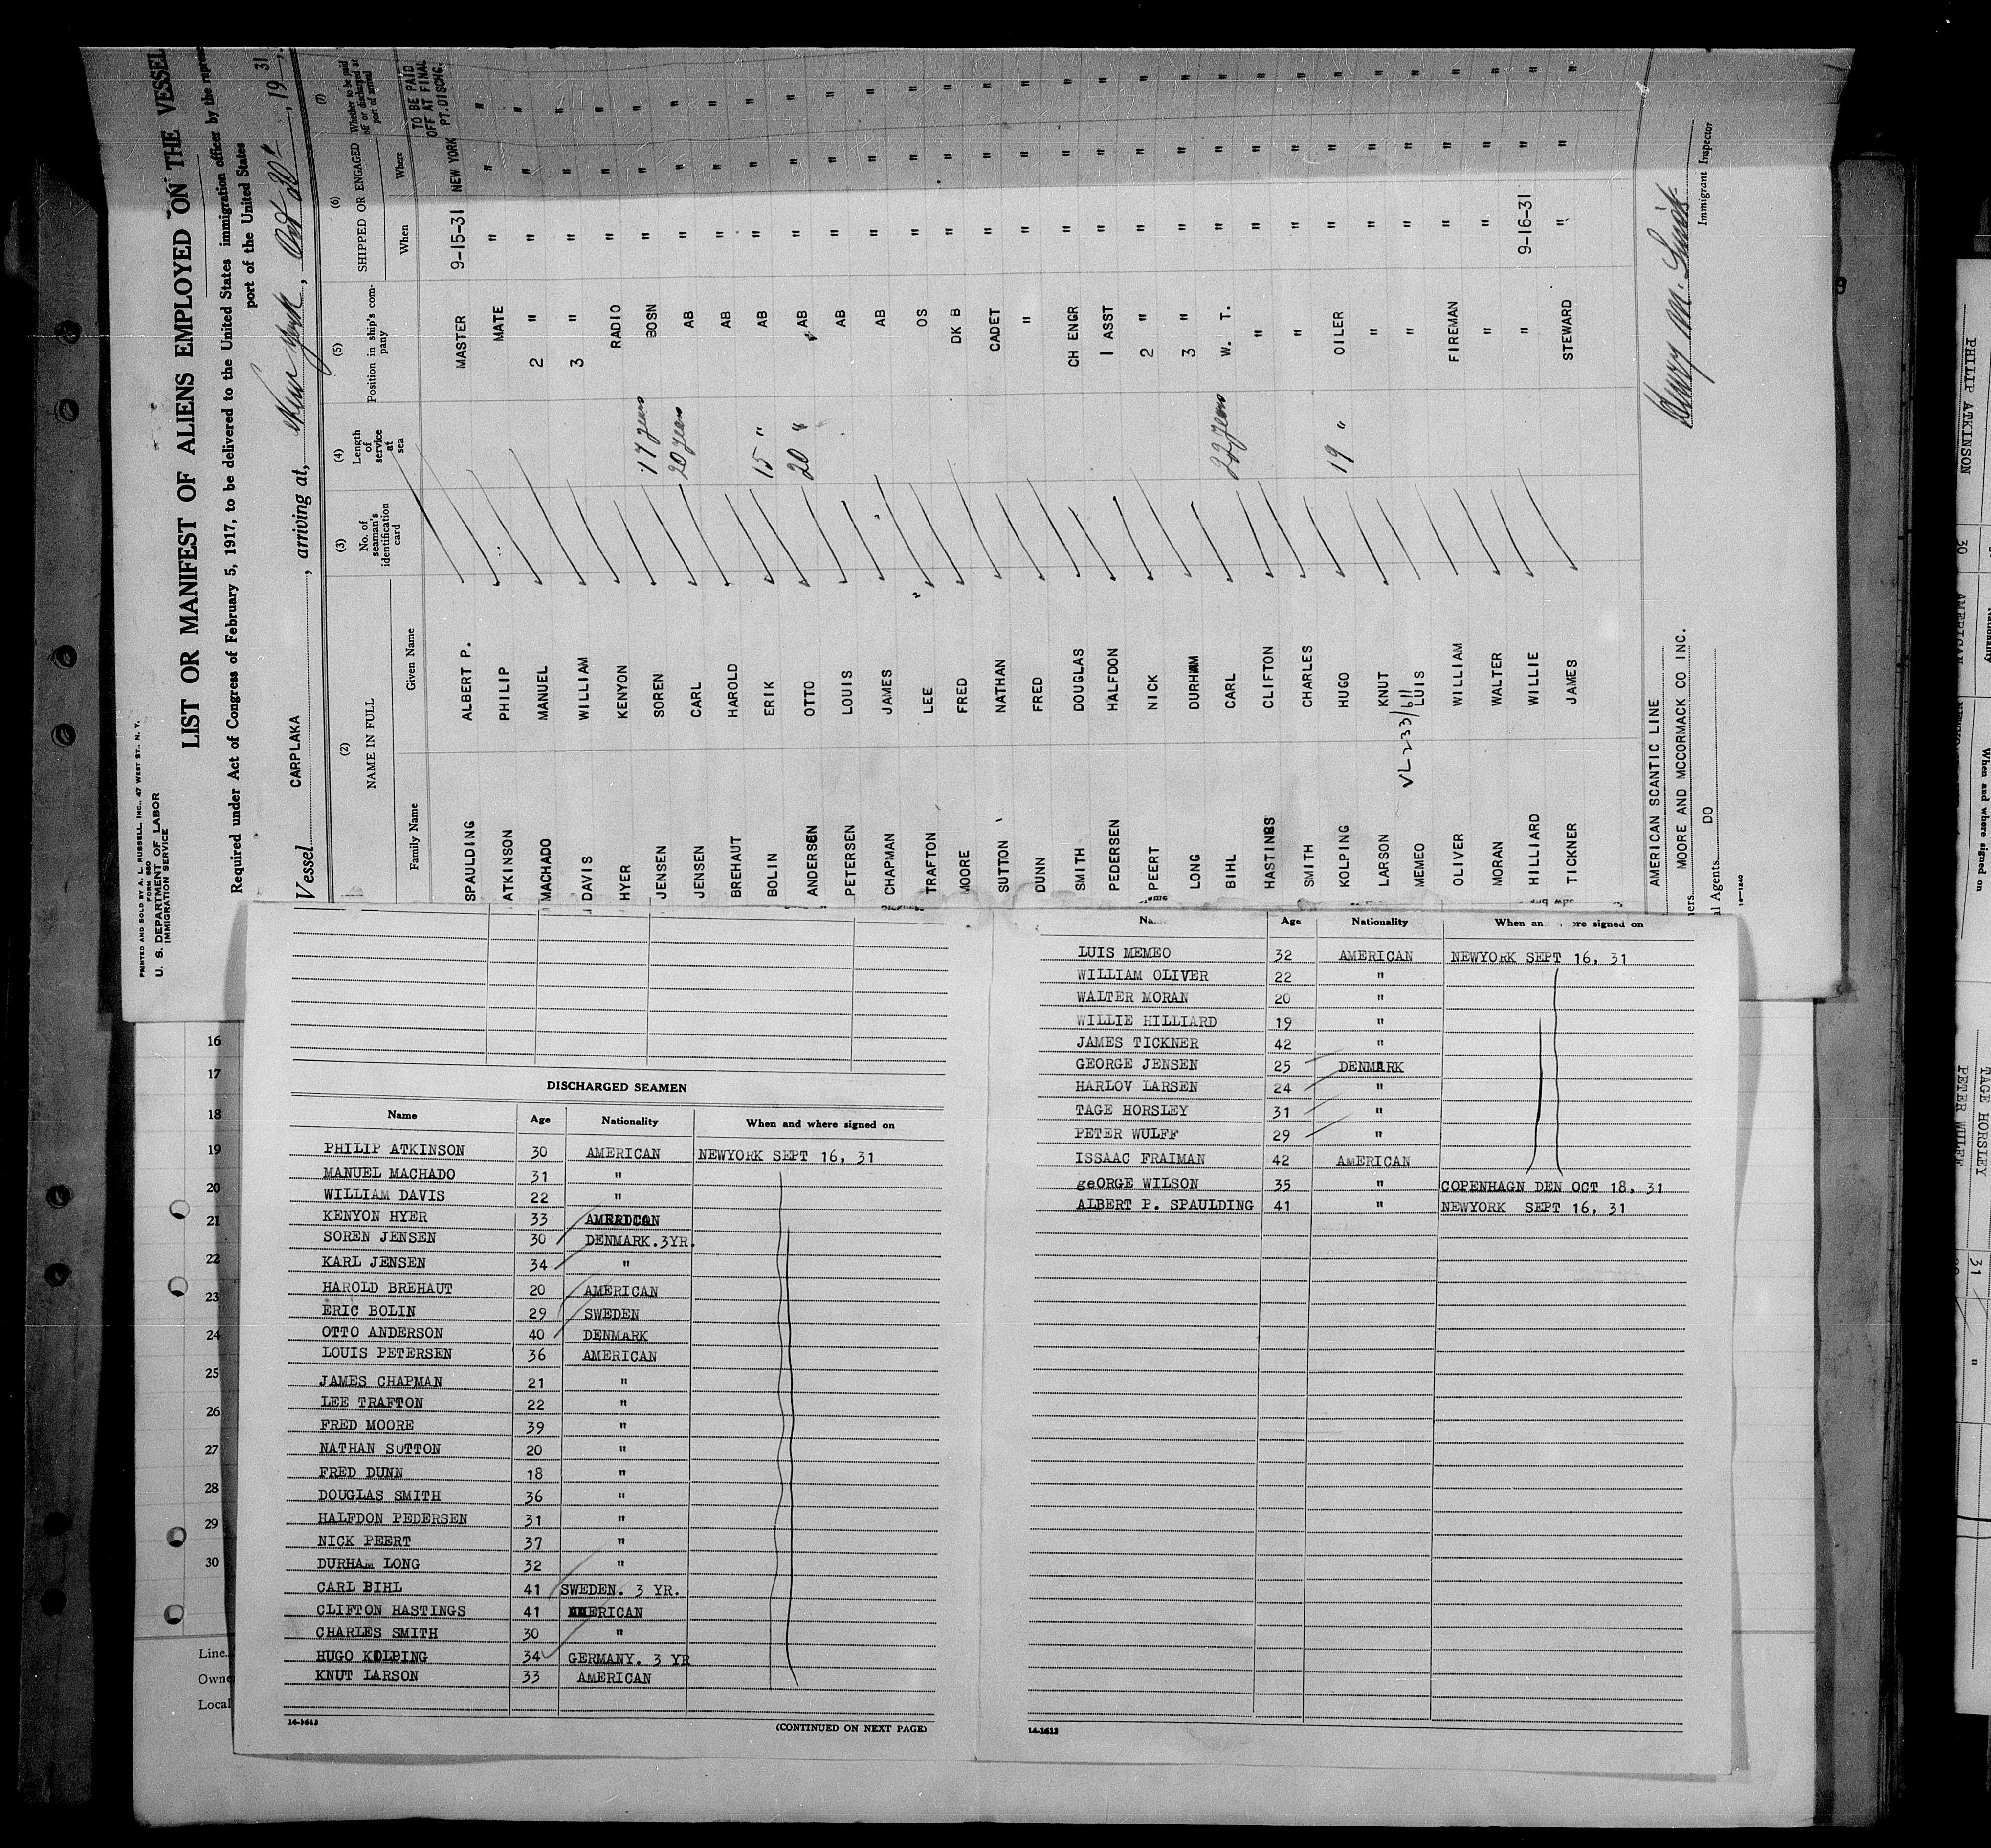 PRINTED AND SOLD BY A. L. RUSSELL, INC., 47 WEST ST., N. Y.
FORM 680
U. S. DEPARTMENT OF LABOR
IMMIGRATION SERVICE
LIST OR MANIFEST OF ALIENS EMPLOYED ON THE VESSEL
Required under Act of Congress of February 5, 1917, to be delivered to the United States immigration officer by the
port of the United States
Vessel CARPLAKA, arriving at, New York, Oct 30th, 19 31
(2) (3) (4) (5) (6) (7)
NAME IN FULL No. of seaman's identification card Length of service at sea Position in ship's company SHIPPED OR ENGAGED Whether to be paid off or discharged at port of arrival
Family Name Given Name When Where
TO BE PAID OFF AT FINAL PT.DISCHG.
SPAULDING ALBERT P. MASTER 9-15-31 NEW YORK
ATKINSON PHILIP MATE " " "
MACHADO MANUEL 2 " " " "
DAVIS WILLIAM 3 " " " "
HYER KENYON RADIO " " "
JENSEN SOREN 17 years BOSN " " "
JENSEN CARL 20 years AB " " "
BREHAUT HAROLD AB " " "
BOLIN ERIK 15 " AB " " "
ANDERSEN OTTO 20 " AB " " "
PETERSEN LOUIS AB " " "
CHAPMAN JAMES AB " " "
TRAFTON LEE OS " " "
MOORE FRED DK B " " "
SUTTON NATHAN CADET " " "
DUNN FRED " " " "
SMITH DOUGLAS CH ENGR " " "
PEDERSEN HALFDON 1 ASST " " "
PEERT NICK 2 " " " "
LONG DURHAM 3 " " " "
BIHL CARL 22 years W. T. " " "
HASTINGS CLIFTON " " " "
SMITH CHARLES " " " "
KOLPING HUGO 19 " OILER " " "
LARSON KNUT " " " "
VL 233/611
MEMEO LUIS " " " "
OLIVER WILLIAM FIREMAN " " "
MORAN WALTER " " " "
HILLIARD WILLIE " 9-16-31 " "
TICKNER JAMES STEWARD " " "
AMERICAN SCANTIC LINE
MOORE AND MCCORMACK CO INC.
al Agents DO
Immigrant Inspector
14-1240
16
17
18
19
20
21
22
23
24
25
26
27
28
29
30
Line
Owne
Local
DISCHARGED SEAMEN
Name Age Nationality When and where signed on
PHILIP ATKINSON 30 AMERICAN NEWYORK SEPT 16, 31
MANUEL MACHADO 31 "
WILLIAM DAVIS 22 "
KENYON HYER 33 AMERICAN
SOREN JENSEN 30 DENMARK.3YR.
KARL JENSEN 34 "
HAROLD BREHAUT 20 AMERICAN
ERIC BOLIN 29 SWEDEN
OTTO ANDERSON 40 DENMARK
LOUIS PETERSEN 36 AMERICAN
JAMES CHAPMAN 21 "
LEE TRAFTON 22 "
FRED MOORE 39 "
NATHAN SUTTON 20 "
FRED DUNN 18 "
DOUGLAS SMITH 36 "
HALFDON PEDERSEN 31 "
NICK PEERT 37 "
DURHAM LONG 32 "
CARL BIHL 41 SWEDEN. 3 YR.
CLIFTON HASTINGS 41 AMERICAN
CHARLES SMITH 30 "
HUGO KOLPING 34 GERMANY. 3 YR
KNUT LARSON 33 AMERICAN
14-1613
(CONTINUED ON NEXT PAGE)
Age Nationality When an re signed on
LUIS MEMEO 32 AMERICAN NEWYORK SEPT 16, 31
WILLIAM OLIVER 22 "
WALTER MORAN 20 "
WILLIE HILLIARD 19 "
JAMES TICKNER 42 "
GEORGE JENSEN 25 DENMARK
HARLOV LARSEN 24 "
TAGE HORSLEY 31 "
PETER WULFF 29 "
ISSAAC FRAIMAN 42 AMERICAN
geORGE WILSON 35 " COPENHAGN DEN OCT 18, 31
ALBERT P. SPAULDING 41 " NEWYORK SEPT 16, 31
14-1613
PHILIP ATKINSON 30 AMERICAN
When and where signed on
TAGE HORSLEY 31 "
PETER WULFF